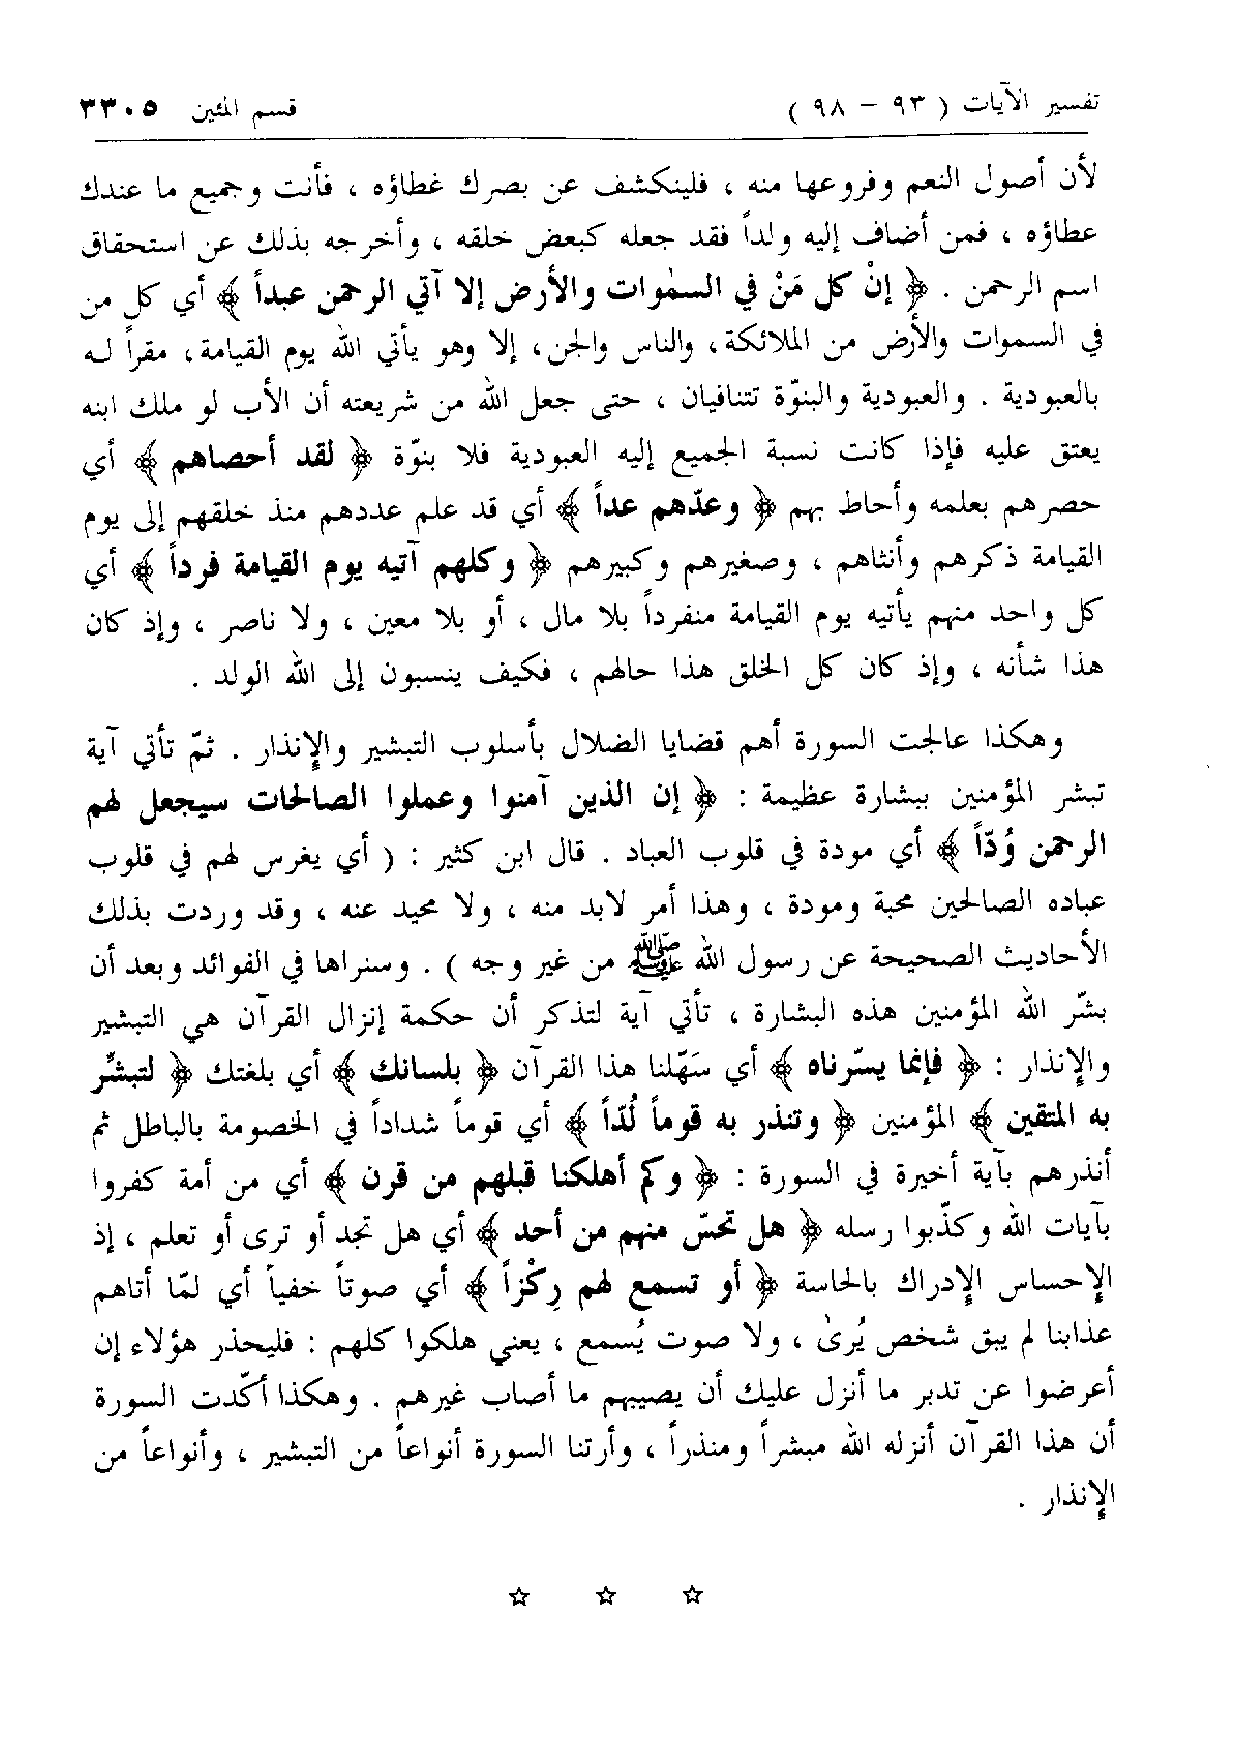 تفسير الآيات ( ٩٣ – ٩٨ ) قسم المئين ٣٣٠٥
لأن أصول النعم وفروعها منه ، فلينكشف عن بصرك غطاؤه ، فأنت وجميع ما عندك
عطاؤه ، فمن أضاف إليه ولداً فقد جعله كبعض خلقه ، وأخرجه بذلك عن استحقاق
اسم الرحمن . ﴿ إنْ كل مَنْ في السمٰوات والأرض إلا آتي الرحمن عبداً ﴾ أي كل من
في السموات والأرض من الملائكة، والناس والجن، إلا وهو يأتي الله يوم القيامة، مقراً له
بالعبودية . والعبودية والبنوّة تتنافيان ، حتى جعل الله من شريعته أن الأب لو ملك ابنه
يعتق عليه فإذا كانت نسبة الجميع إليه العبودية فلا بنوّة ﴿ لقد أحصاهم ﴾ أي
حصرهم بعلمه وأحاط بهم ﴿ وعدّهم عداً ﴾ أي قد علم عددهم منذ خلقهم إلى يوم
القيامة ذكرهم وأنثاهم ، وصغيرهم وكبيرهم ﴿ وكلهم آتيه يوم القيامة فرداً ﴾ أي
كل واحد منهم يأتيه يوم القيامة منفرداً بلا مال ، أو بلا معين ، ولا ناصر ، وإذ كان
هذا شأنه ، وإذ كان كل الخلق هذا حالهم ، فكيف ينسبون إلى الله الولد .
وهكذا عالجت السورة أهم قضايا الضلال بأسلوب التبشير والإنذار . ثمّ تأتي آية
تبشر المؤمنين ببشارة عظيمة : ﴿ إن الذين آمنوا وعملوا الصالحات سيجعل لهم
الرحمن وُدّاً ﴾ أي مودة في قلوب العباد . قال ابن كثير : ( أي يغرس لهم في قلوب
عباده الصالحين محبة ومودة ، وهذا أمر لابد منه ، ولا محيد عنه ، وقد وردت بذلك
الأحاديث الصحيحة عن رسول الله ﷺ من غير وجه ) . وسنراها في الفوائد وبعد أن
بشّر الله المؤمنين هذه البشارة ، تأتي آية لتذكر أن حكمة إنزال القرآن هي التبشير
والإنذار : ﴿ فإنما يسّرناه ﴾ أي سَهّلنا هذا القرآن ﴿ بلسانك ﴾ أي بلغتك ﴿ لتبشّر
به المتقين ﴾ المؤمنين ﴿ وتنذر به قوماً لُدّاً ﴾ أي قوماً شداداً في الخصومة بالباطل ثم
أنذرهم بآية أخيرة في السورة : ﴿ وكم أهلكنا قبلهم من قرن ﴾ أي من أمة كفروا
بآيات الله وكذّبوا رسله ﴿ هل تحسّ منهم من أحد ﴾ أي هل تجد أو ترى أو تعلم ، إذ
الإحساس الإدراك بالحاسة ﴿ أو تسمع لهم رِكْزاً ﴾ أي صوتاً خفياً أي لمّا أتاهم
عذابنا لم يبق شخص يُرىٰ ، ولا صوت يُسمع ، يعني هلكوا كلهم : فليحذر هؤلاء إن
أعرضوا عن تدبر ما أنزل عليك أن يصيبهم ما أصاب غيرهم . وهكذا أكّدت السورة
أن هذا القرآن أنزله الله مبشراً ومنذراً ، وأرتنا السورة أنواعاً من التبشير ، وأنواعاً من
الإنذار .
☆ ☆ ☆